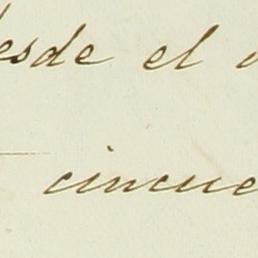 desde el
cincue